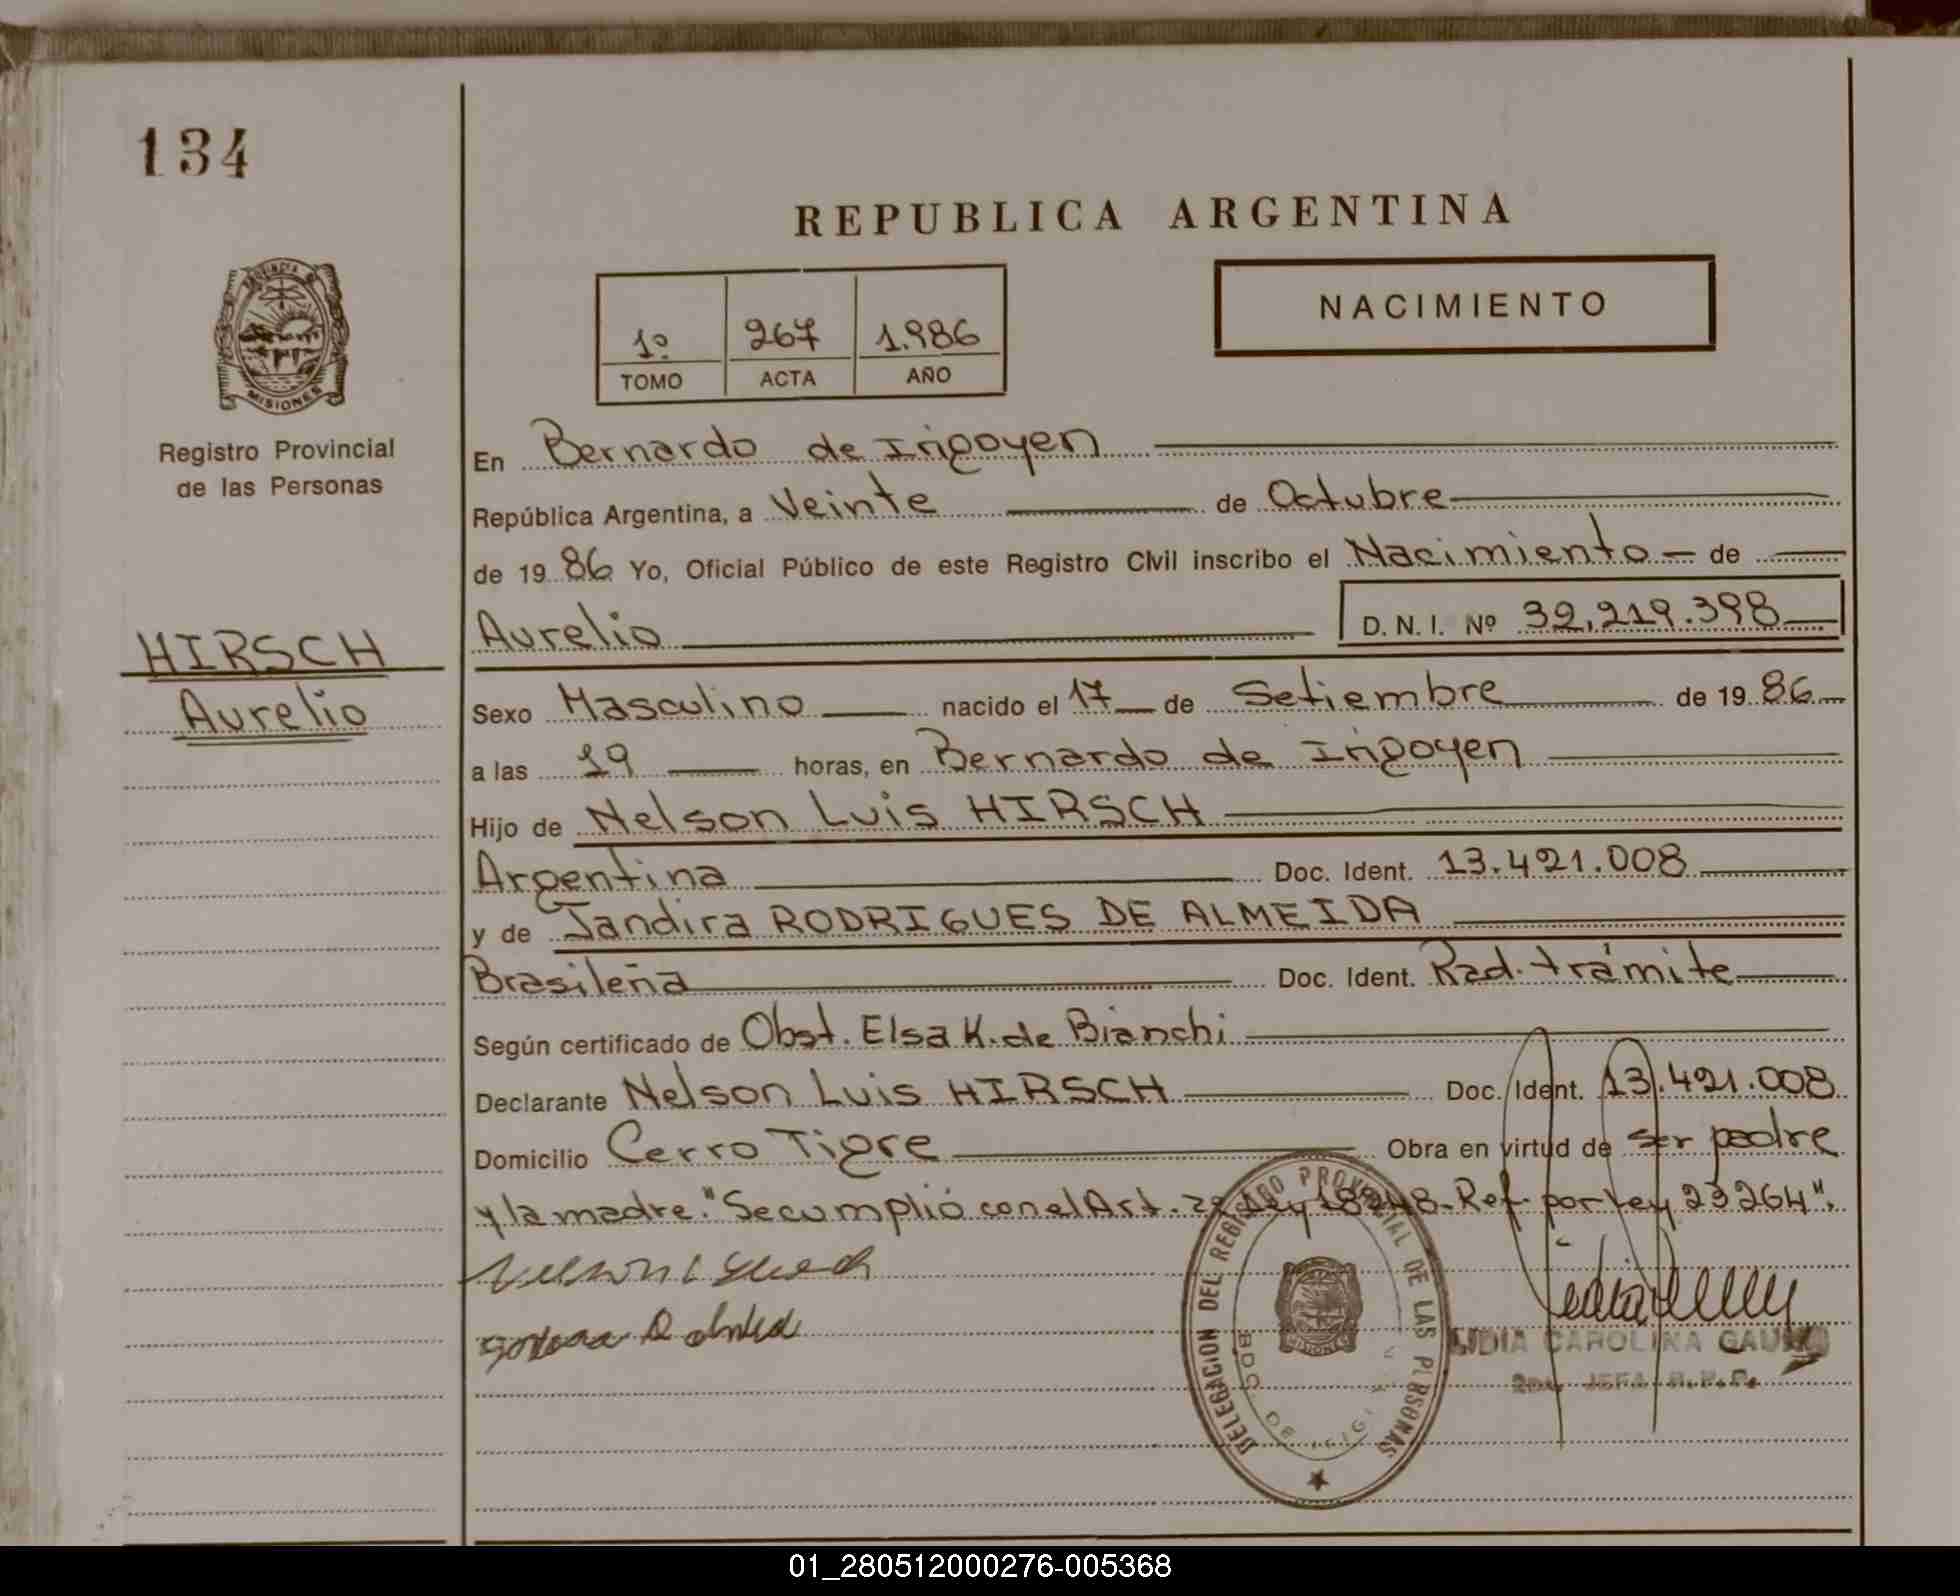 134
REPUBLICA ARGENTINA
NACIMIENTO
1º 267 1.986
TOMO ACTA AÑO
PROVINCIA DE
MISIONES
Registro Provincial
de las Personas
En Bernardo de Irigoyen
República Argentina, a Veinte de Octubre
de 19 86 Yo, Oficial Público de este Registro Civil inscribo el Nacimiento de
Aurelio D.N.I. Nº 32.219.398
HIRSCH
Aurelio
Sexo Masculino nacido el 17 de Setiembre de 19 86
a las 19 horas, en Bernardo de Irigoyen
Hijo de Nelson Luis HIRSCH
Argentina Doc. Ident. 13.421.008
y de Jandira RODRIGUES DE ALMEIDA
Brasileña Doc. Ident. Rad. trámite
Según certificado de Obst. Elsa K. de Bianchi
Declarante Nelson Luis HIRSCH Doc. Ident. 13.421.008
Domicilio Cerro Tigre Obra en virtud de ser padre
y la madre. "Se cumplió con el Art. 2º Ley 18248. Ref. por Ley 23264".
DELEGACION DEL REGISTRO PROVINCIAL DE LAS PERSONAS
MISIONES
LIDIA CAROLINA
JEFA R.P.P.
01_280512000276-005368